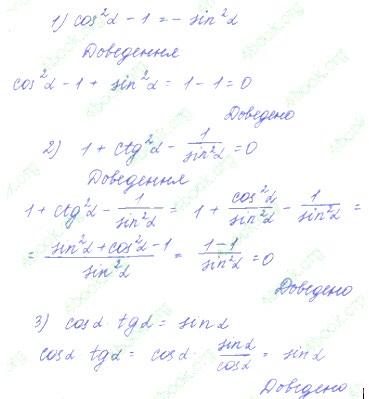 1) cos²α - 1 = - sin²α
Доведення
cos²α - 1 + sin²α = 1 - 1 = 0
Доведено
2) 1 + ctg²α - 1/sin²α = 0
Доведення
1 + ctg²α - 1/sin²α = 1 + cos²α/sin²α - 1/sin²α =
= sin²α + cos²α - 1/sin²α = 1 - 1/sin²α = 0
Доведено
3) cosα · tgα = sinα
cosα tgα = cosα · sinα/cosα = sinα
Доведено